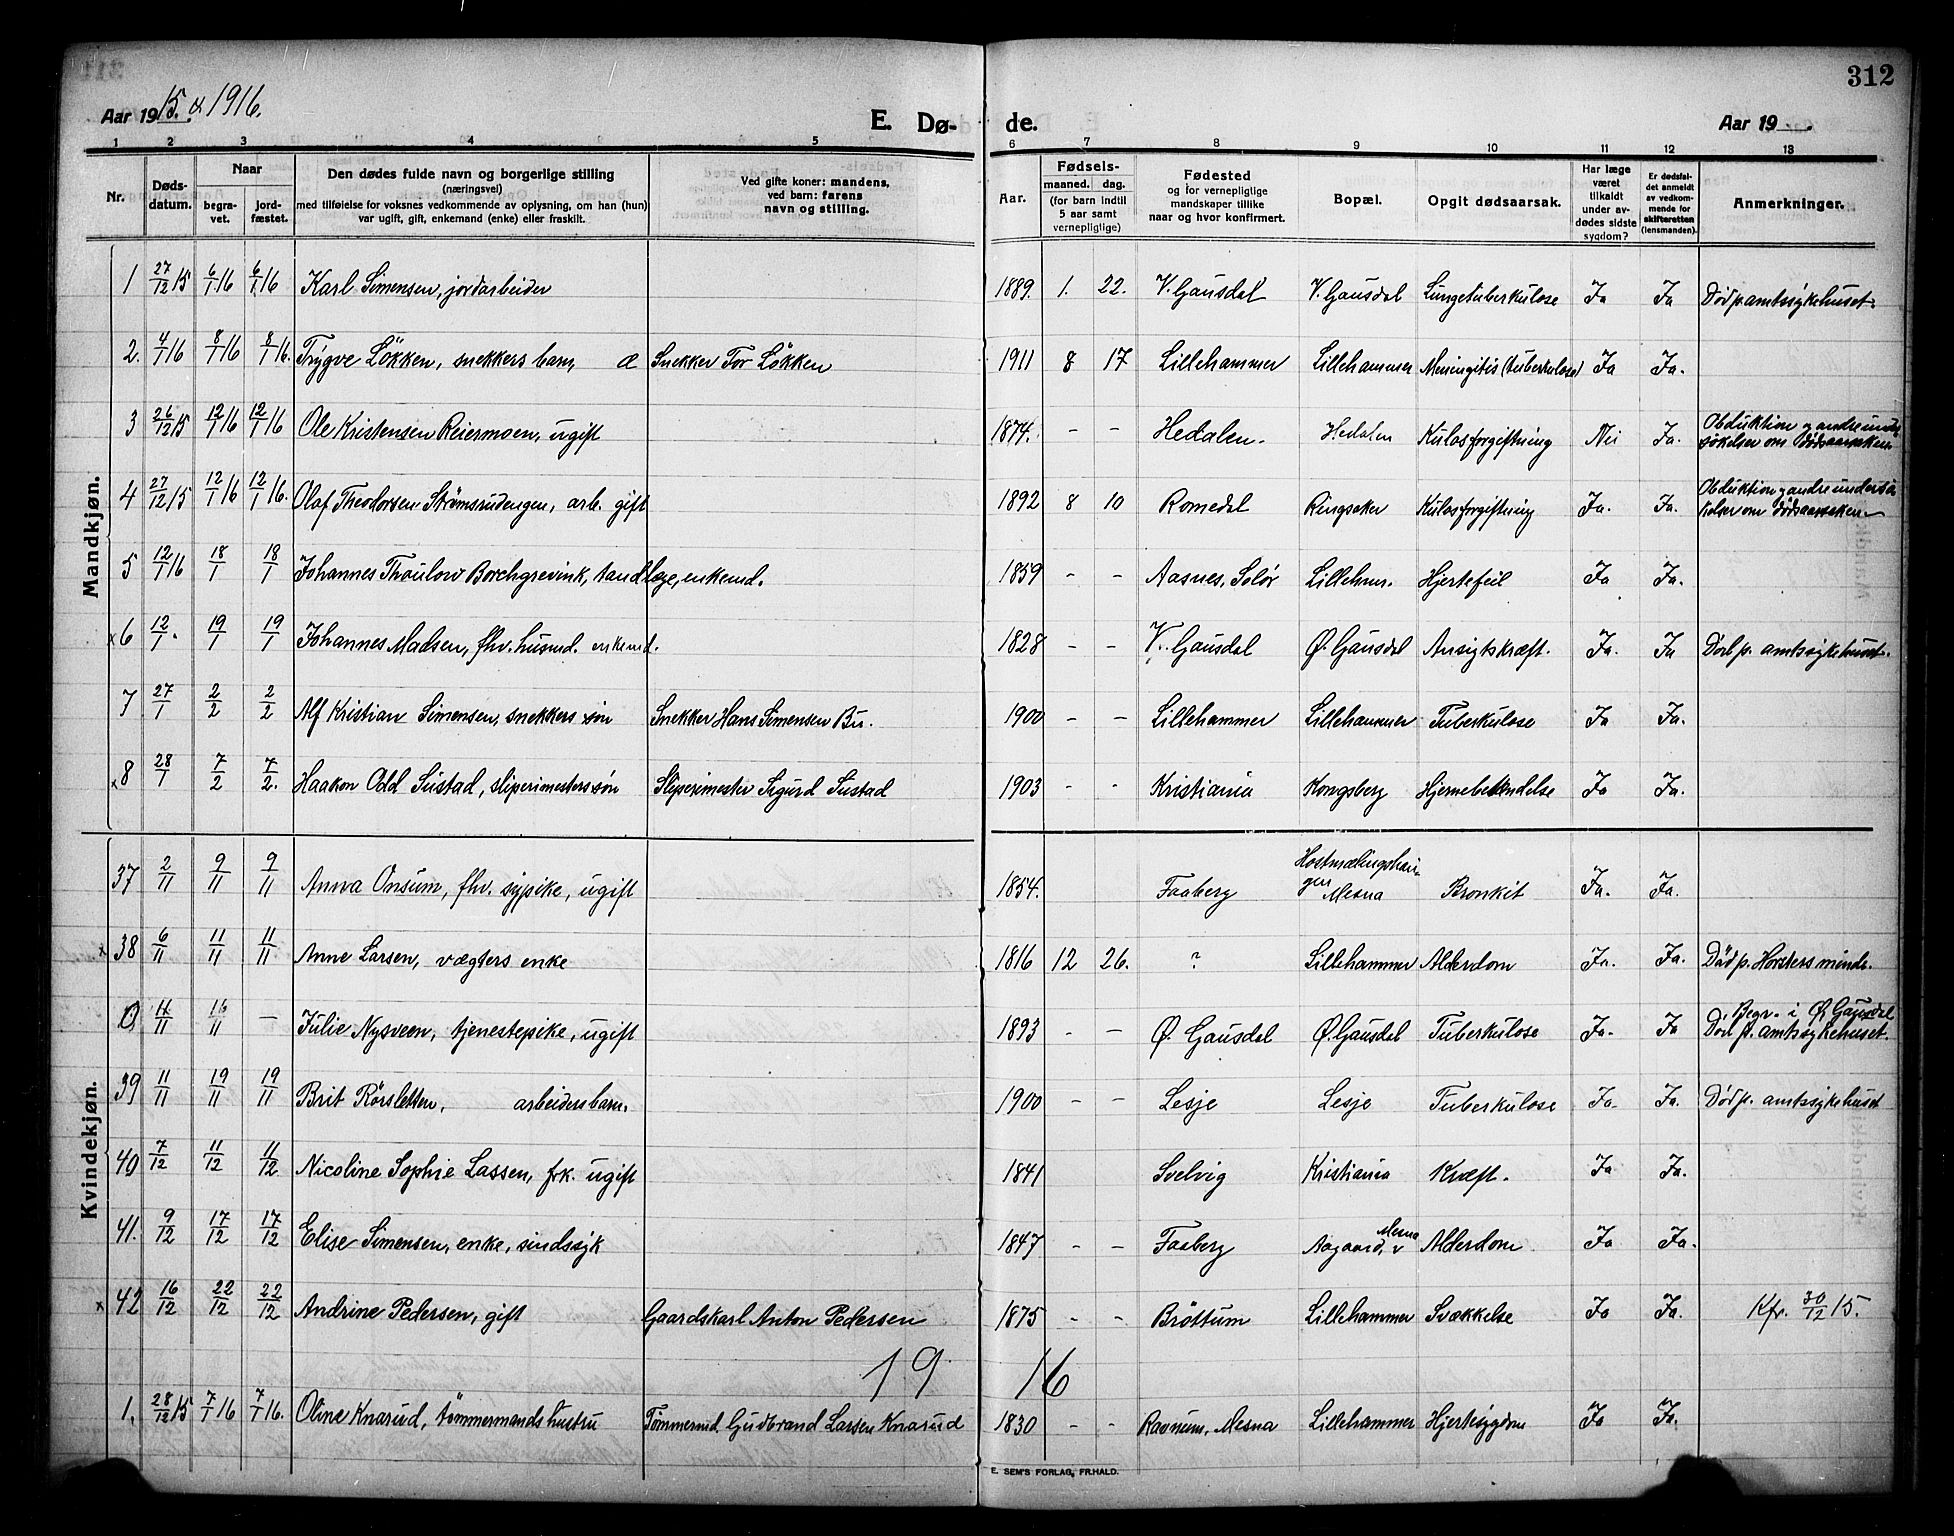 312
Aar 1915. & 1916.
E. Dø- de.
Aar 19
1 2 3 4 5 6 7 8 9 10 11 12 13
Nr.
Døds-
datum.
Naar
begra-
vet.
jord-
fæstet.
Den dødes fulde navn og borgerlige stilling
(næringsvei)
med tilføielse for voksnes vedkommende av oplysning, om han (hun)
var ugift, gift, enkemand (enke) eller fraskilt.
Ved gifte koner: mandens,
ved barn: farens
navn og stilling.
Aar.
Fødsels-
maaned. dag.
(for barn indtil
5 aar samt
vernepligtige)
Fødested
og for vernepligtige
mandskaper tillike
naar og hvor konfirmert.
Bopæl.
Opgit dødsaarsak.
Har læge
været
tilkaldt
under av-
dødes sidste
sygdom?
Er dødsfal-
det anmeldt
av vedkom-
mende for
skifteretten
(lensmanden).
Anmerkninger.
Mandkjøn.
1 27/12 15 6/1 16 6/1 16 Karl Simensen, jordarbeider 1889. 1. 22. V. Gausdal V. Gausdal Lungetuberkulose Ja Ja Død p. amtssykehuset.
2. 4/1 16 8/1 16 8/1 16. Trygve Løkken, snekkers barn, æ Snekker Tor Løkken 1911 8 17 Lillehammer Lillehammer Meningitis (tuberkulose) Ja Ja.
3 26/12 15 12/1 16 12/1 16 Ole Kristensen Reiermoen, ugift 1874. - - Hedalen. Hedalen Kulosforgiftning Nei Ja. Obduktion og andre under
søkelser om dødsaarsaken.
4 27/12 15 12/1 16 12/1 16. Olaf Theodorsen Strømsrudengen, arb. gift 1892 8 10 Romedal Ringsaker Kulosforgiftning Ja. Ja. Obduktion og andre undersø
kelser om dødsaarsaken.
5 12/1 16 18/1 18/1 Johannes Thaulow Borchgrevink, tandlæge, enkemd. 1859 - - Aasnes, Solør Lilleham. Hjertefeil Ja Ja.
x 6 12/1. 19/1 19/1 Johannes Madsen, fhv. husmd. enkemd. 1828 - - V. Gausdal Ø. Gausdal Ansigtskræft. Ja. Ja Død p. amtssykehuset.
7 27/1 2/2 2/2 Alf Kristian Simensen, snekkers søn Snekker Hans Simensen Bu. 1900 - - Lillehammer Lillehammer Tuberkulose Ja Ja.
x 8 28/1 7/2 7/2. Haakon Odd Sustad, sliperimesters søn Sliperimester Sigurd Sustad 1903 - - Kristiania Kongsberg Hjernebetændelse Ja Ja.
Kvindekjøn.
37 2/11 9/11 9/11 Anna Onsum, fhv. sypike, ugift 1854. Faaberg Mesna Bronkit Ja. Ja.
x 38 6/11 11/11 11/11 Anne Larsen, vægters enke 1816 12 26. ? Lillehammer Alderdom Ja. Ja. Død p. Horsters minde.
0 11/11 16/11 - Julie Nysveen, tjenestepike, ugift 1893 - - Ø. Gausdal Ø. Gausdal Tuberkulose Ja. Ja Begr. i Ø. Gausdal
Død p. amtssykehuset.
39 11/11 19/11 19/11 Brit Rørsletten, arbeiders barn. 1900 - - Lesje Lesje Tuberkulose Ja. Ja. Død p. amtssykehuset
40 7/12 11/12 11/12 Nicoline Sophie Lassen, frk. ugift 1841 Svelvig Kristiania Kræft. Ja Ja.
41. 9/12 17/12 17/12 Elise Simensen, enke, sindssyk 1847 - - Faaberg Aagaard, Mesna Alderdom Ja Ja.
x 42 16/12 22/12 22/12 Andrine Pedersen, gift Gaardskarl Anton Pedersen 1875 - - Brøttum Lillehammer Svækkelse Ja Ja. Kfr. 30/12 15.
19 16
1. 28/12 15 7/1 16 7/1 16. Oline Knarud, tømmermands hustru Tømmermd. Gudbrand Larsen Knarud 1830 - - Ravnum, Mesna Lillehammer Hjertesygdom Ja Ja.
E. SEM'S FORLAG, FR.HALD.